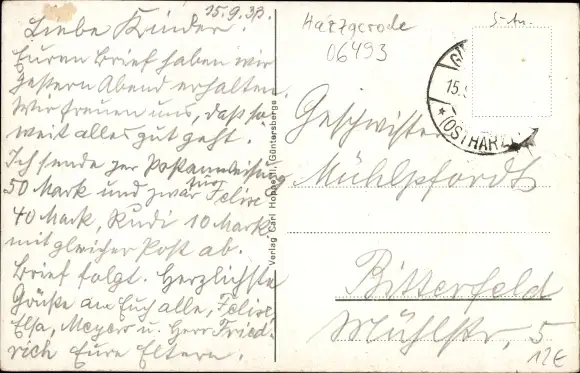 15.9.33.
Liebe Kinder!
Euren Brief haben wir
gestern Abend erhalten.
Wir freuen uns, daß so-
weit alles gut geht.
Ich sende per Postanweisung
50 Mark und zwar für Felise
40 Mark, Rudi 10 Mark
mit gleicher Post ab.
Brief folgt. Herzlichste
Grüße an Euch alle, Felise,
Elsa, Meyers u. Herr Fried-
rich Eure Eltern.
Verlag Carl Hoppstil, Güntersberge
Harzgerode
06493
15.
(OSTHARZ)
Geschwister
Mühlpfordt
Bitterfeld
Mühlstr. 5
12€